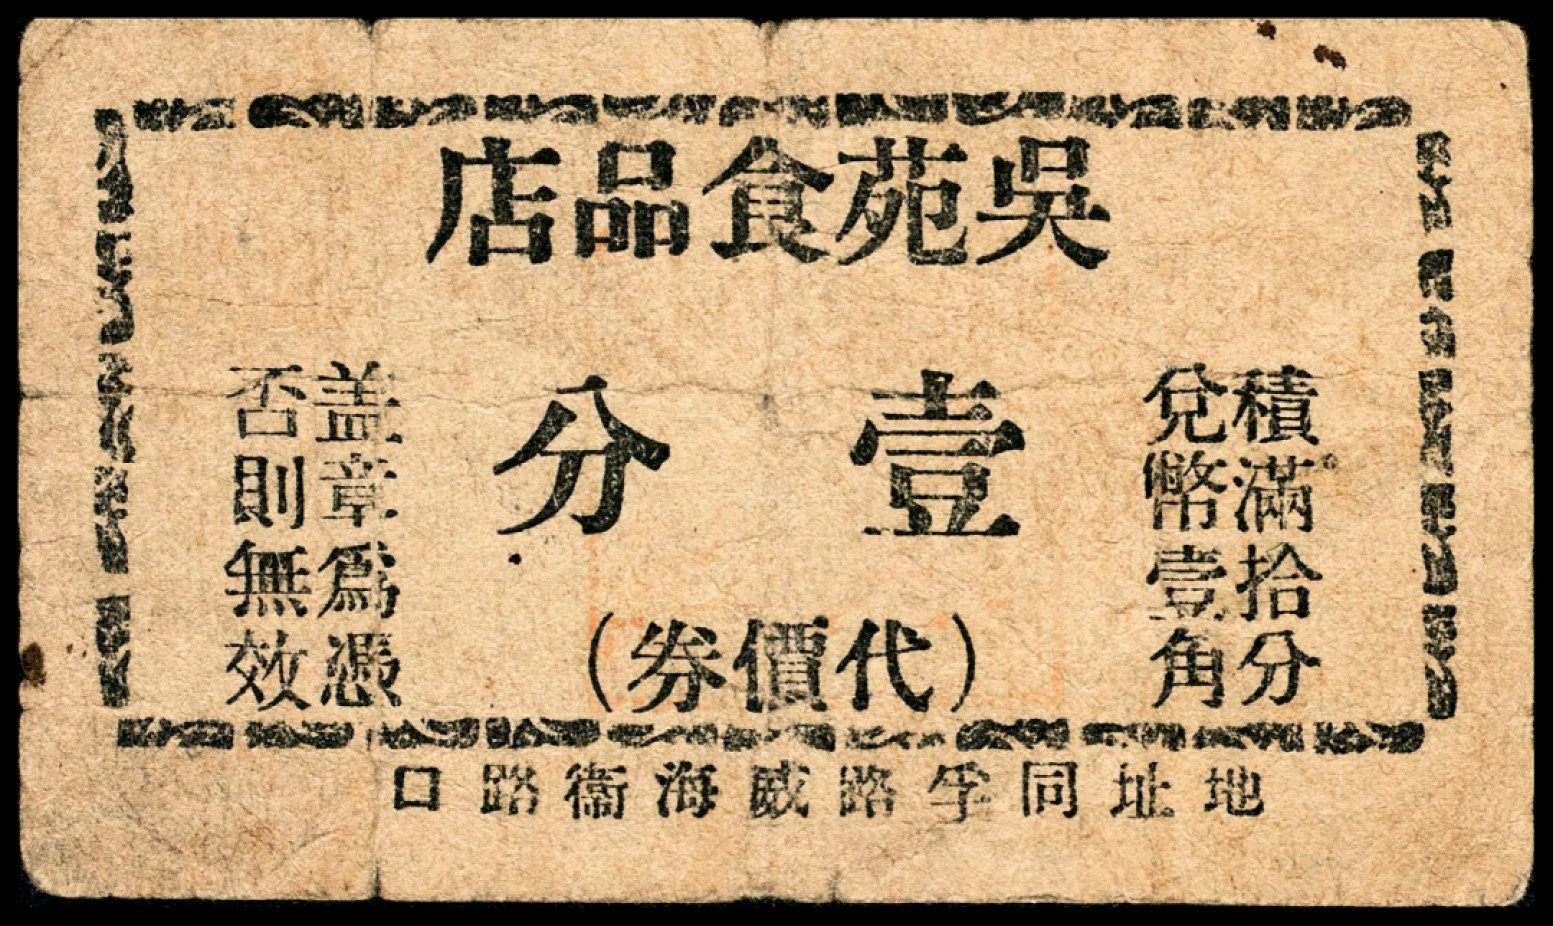 吳苑食品店
積滿拾分
兌幣壹角
壹分
(代價券)
蓋章為憑
否則無效
地址同孚路威海衞路口